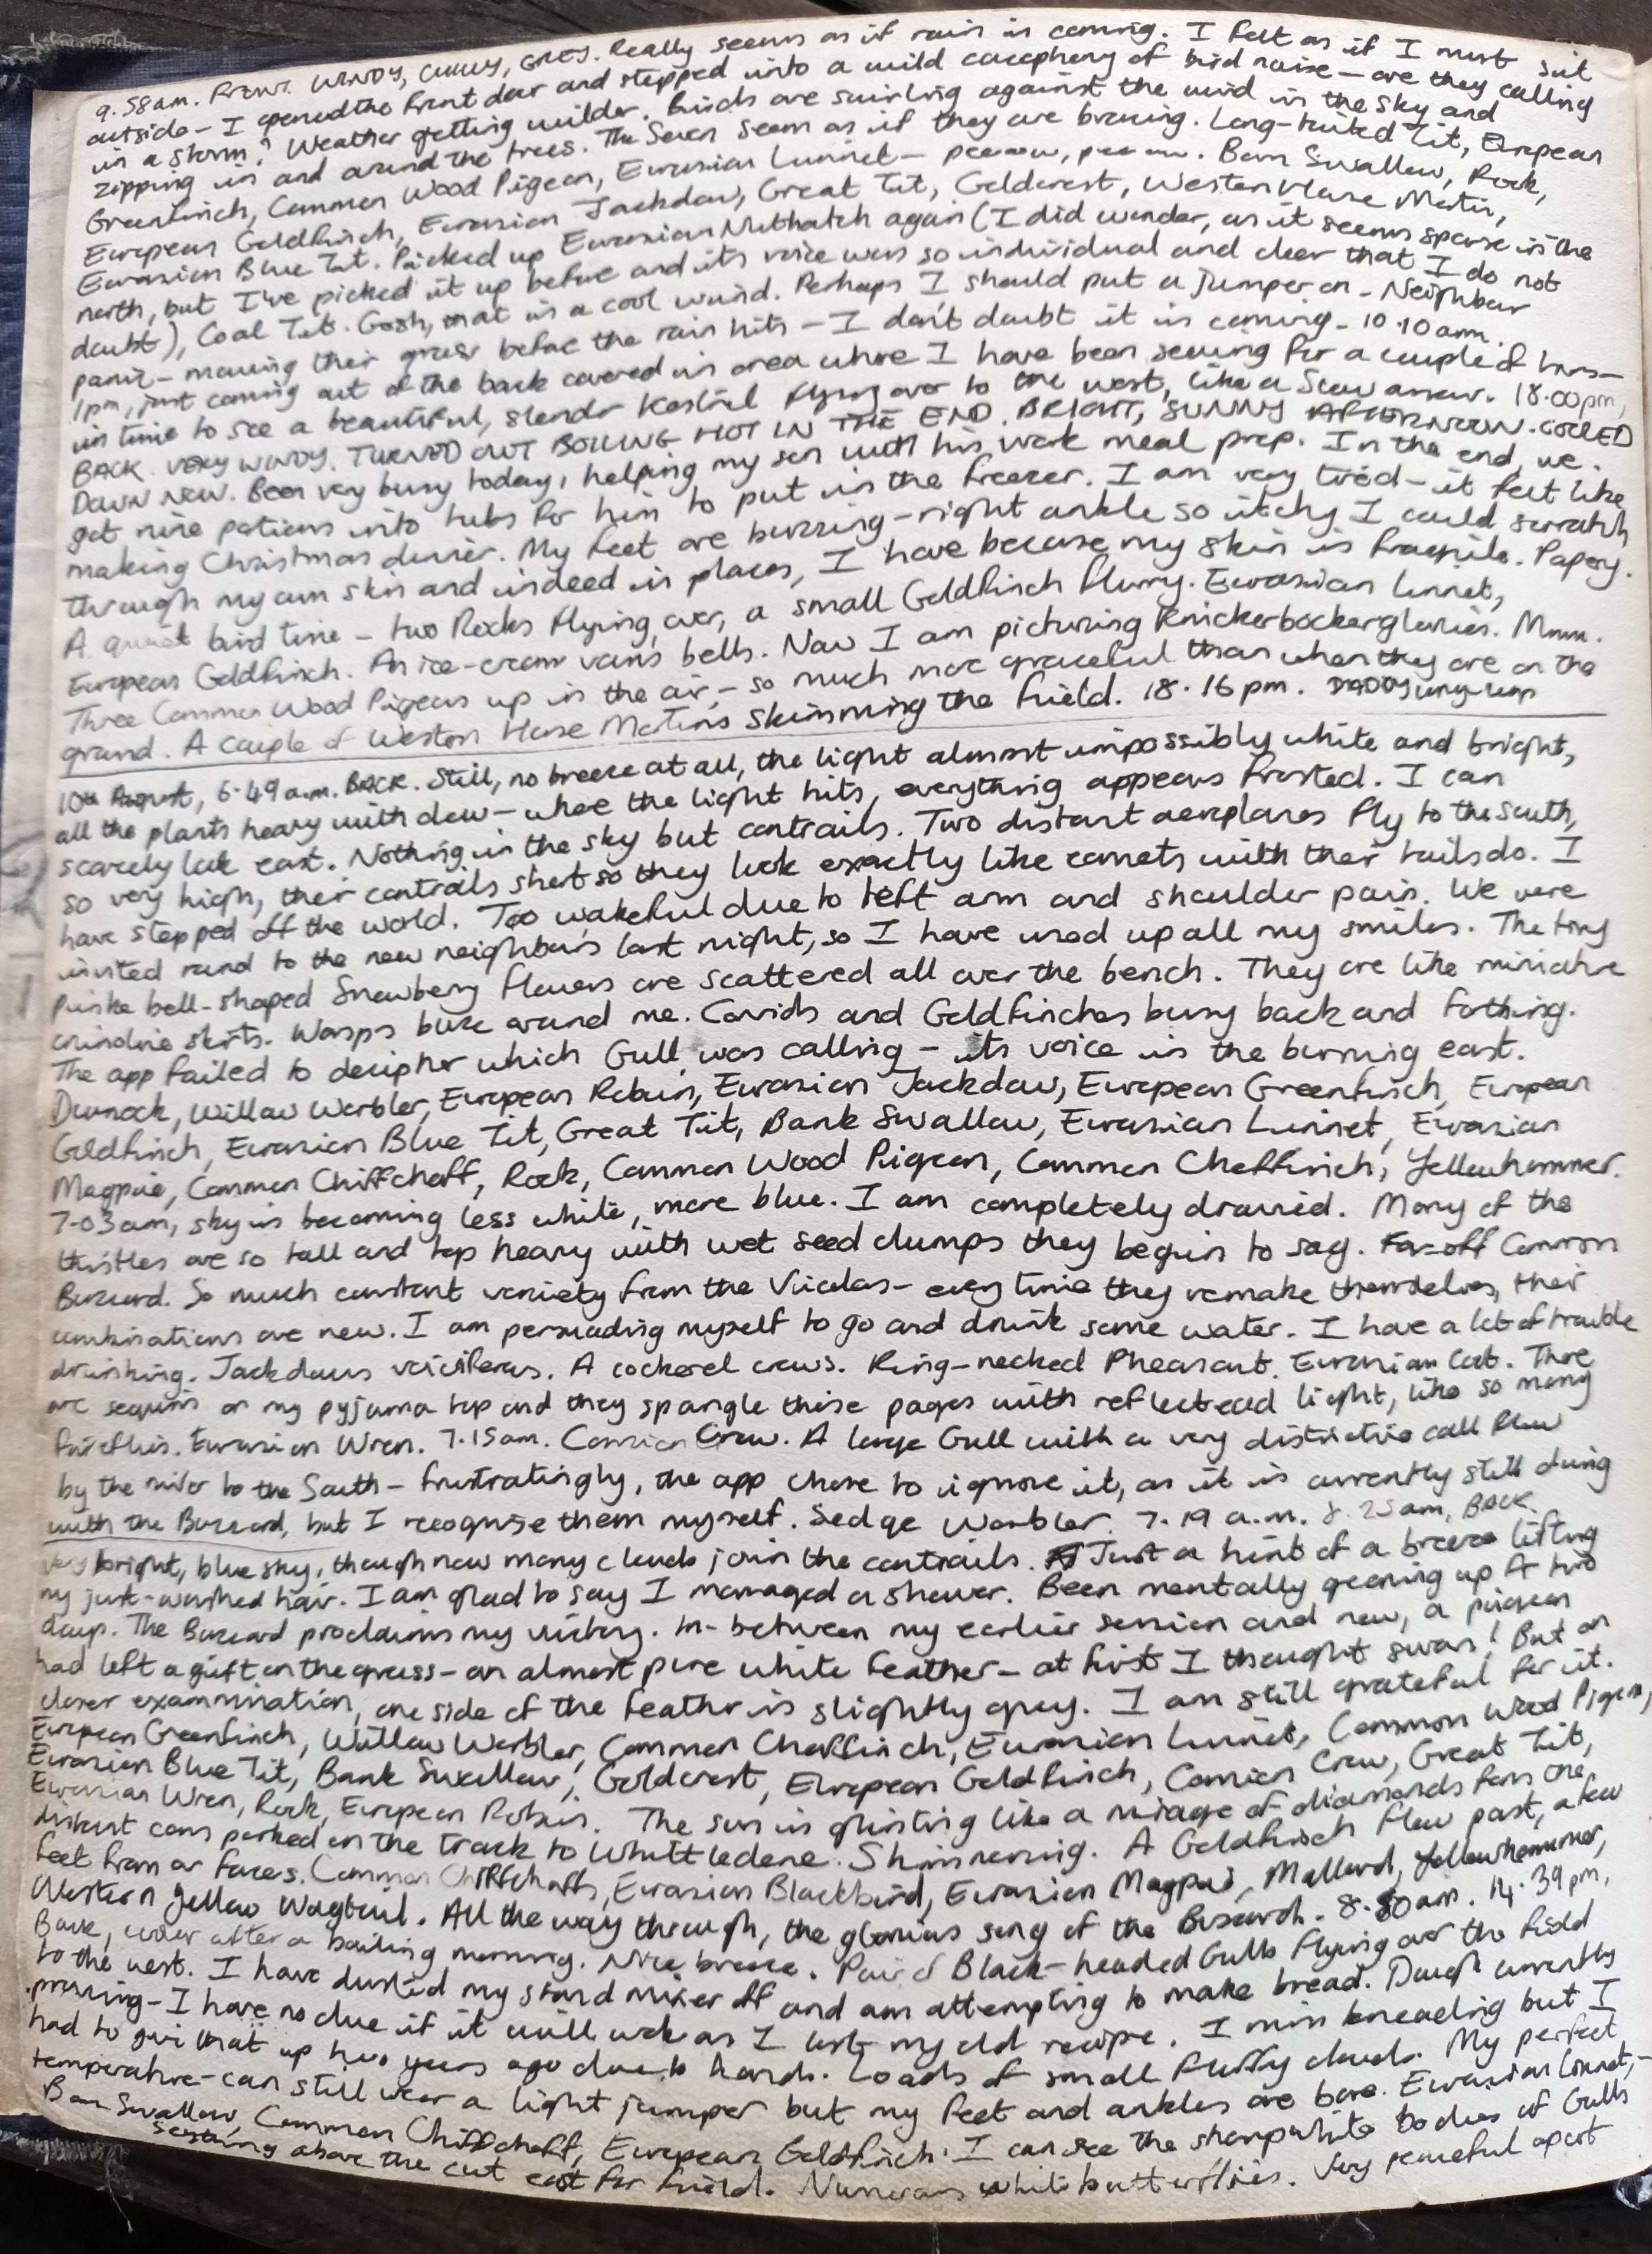 9.58am. FRONT. WINDY, CHILLY, GREY. Really seems as if rain is coming. I felt as if I must sit
outside – I opened the front door and stepped into a wild cacophony of bird noise – are they calling
in a storm? Weather getting wilder. Birds are swirling against the wind in the sky and
zipping in and around the trees. The Seven seem as if they are bracing. Long-tailed Tit, European
Greenfinch, Common Wood Pigeon, Eurasian Linnet – peeow, peeow. Barn Swallow, Rook,
European Goldfinch, Eurasian Jackdaw, Great Tit, Goldcrest, Western House Martin,
Eurasian Blue Tit. Picked up Eurasian Nuthatch again (I did wonder, as it seems sparse in the
north, but I've picked it up before and its voice was so individual and clear that I do not
doubt), Coal Tit. Gosh, that is a cool wind. Perhaps I should put a jumper on – Neighbour
panic – mowing their grass before the rain hits – I don't doubt it is coming – 10.10am.
1pm, just coming out of the back covered in area where I have been sewing for a couple of hours –
in time to see a beautiful, slender Kestrel flying over to the west, like a slow arrow. 18.00pm,
BACK. VERY WINDY. TURNED OUT BOILING HOT IN THE END. BRIGHT, SUNNY AFTERNOON. COOLED
DOWN NOW. Been very busy today, helping my son with his work meal prep. In the end, we
got nine portions into tubs for him to put in the freezer. I am very tired – it felt like
making Christmas dinner. My feet are buzzing – right ankle so itchy I could scratch
through my own skin and indeed in places, I have because my skin is fragile. Papery.
A quiet bird time – two Rooks flying over, a small Goldfinch flurry. Eurasian Linnet,
European Goldfinch. An ice-cream van's bells. Now I am picturing Knickerbockerglories. Mmm.
Three Common Wood Pigeons up in the air – so much more graceful than when they are on the
ground. A couple of Western House Martins skimming the field. 18.16pm. DADDY long-legs
10th August, 6.49a.m. BACK. Still, no breeze at all, the light almost impossibly white and bright,
all the plants heavy with dew – where the light hits, everything appears frosted. I can
scarcely look east. Nothing in the sky but contrails. Two distant aeroplanes fly to the South,
so very high, their contrails short so they look exactly like comets with their tails do. I
have stepped off the world. Too wakeful due to left arm and shoulder pain. We were
invited round to the new neighbours last night, so I have used up all my smiles. The tiny
pinke bell-shaped Snowberry flowers are scattered all over the bench. They are like miniature
crinoline skirts. Wasps buzz around me. Corvids and Goldfinches busy back and forthing.
The app failed to decipher which Gull was calling – its voice in the burning east.
Dunnock, Willow Warbler, European Robin, Eurasian Jackdaw, European Greenfinch, European
Goldfinch, Eurasian Blue Tit, Great Tit, Bank Swallow, Eurasian Linnet, Eurasian
Magpie, Common Chiffchaff, Rook, Common Wood Pigeon, Common Chaffinch, Yellowhammer.
7.03am, sky is becoming less white, more blue. I am completely drained. Many of the
thistles are so tall and top heavy with wet seed clumps they begin to sag. Far-off Common
Buzzard. So much constant variety from the Violas – every time they remake themselves, their
combinations are new. I am persuading myself to go and drink some water. I have a lot of trouble
drinking. Jackdaws vociferous. A cockerel crows. Ring-necked Pheasant. Eurasian Coot. There
are sequins on my pyjama top and they spangle these pages with reflected light, like so many
fireflies. Eurasian Wren. 7.15am. Carrion Crow. A large Gull with a very distinctive call flew
by the river to the South – frustratingly, the app chose to ignore it, as it is currently still doing
with the Buzzard, but I recognise them myself. Sedge Warbler. 7.19 a.m. 8.25am, BACK.
Very bright, blue sky, though now many clouds join the contrails. Just a hint of a breeze lifting
my just-washed hair. I am glad to say I managed a shower. Been mentally gearing up for two
days. The Buzzard proclaims my victory. In-between my earlier session and now, a pigeon
had left a gift on the grass – an almost pure white feather – at first I thought swan! But on
closer examination, one side of the feather is slightly grey. I am still grateful for it.
European Greenfinch, Willow Warbler, Common Chaffinch, Eurasian Linnet, Common Wood Pigeon,
Eurasian Blue Tit, Bank Swallow, Goldcrest, European Goldfinch, Carrion Crow, Great Tit,
Eurasian Wren, Rook, European Robin. The sun is glinting like a mirage of diamonds from the
distant cars parked on the track to Whittledene. Shimmering. A Goldfinch flew past, a few
feet from our faces. Common Chiffchaffs, Eurasian Blackbird, Eurasian Magpie, Mallard, Yellowhammer,
Western Yellow Wagtail. All the way through, the glorious song of the Buzzard. 8.50am. 14.39pm,
Back, cooler after a boiling morning. Nice breeze. Pair of Black-headed Gulls flying over the field
to the west. I have dusted my stand mixer off and am attempting to make bread. Dough currently
proving – I have no clue if it will work as I lost my old recipe. I miss kneading but I
had to give that up two years ago due to hands. Loads of small fluffy clouds. My perfect
temperature – can still wear a light jumper but my feet and ankles are bare. Eurasian Linnet,
Barn Swallow, Common Chiffchaff, European Goldfinch. I can see the sharp white bodies of Gulls
above the cut east far field. Numerous white butterflies. Very peaceful apart